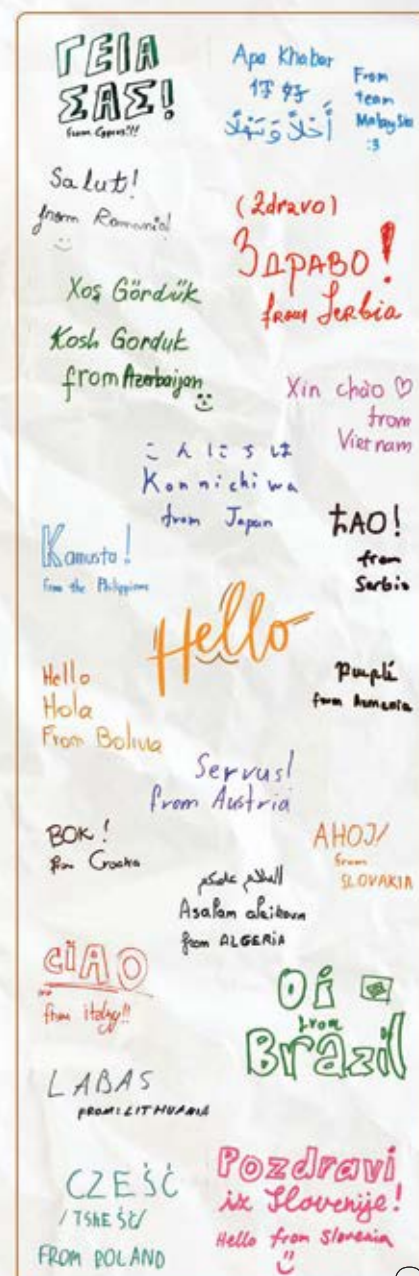 ΓΕΙΑ
ΣΑΣ!
from Cyprus!!!
Apa Khabar
你好
أَهْلاً وَسَهْلاً
From
team
Malaysia
:3
Salut!
from Romania!
(Zdravo)
ЗДРАВО!
from Serbia
Xoş Gördük
Kosh Gorduk
from Azerbaijan
Xin chào ♡
from
Vietnam
こんにちは
Konnichiwa
from Japan
ЋАО!
from
Serbia
Kamusta!
from the Philippines
Hello
Բարև
from Armenia
Hello
Hola
From Bolivia
Servus!
from Austria
BOK!
from Croatia
AHOJ!
from
SLOVAKIA
السلام عليكم
Asalam aleikoum
from ALGERIA
CIAO
from italy!!
Oi
from
Brazil
LABAS
FROM: LITHUANIA
CZEŚĆ
/TSHEŚĆ/
FROM POLAND
Pozdravi
iz Slovenije!
Hello from Slovenia